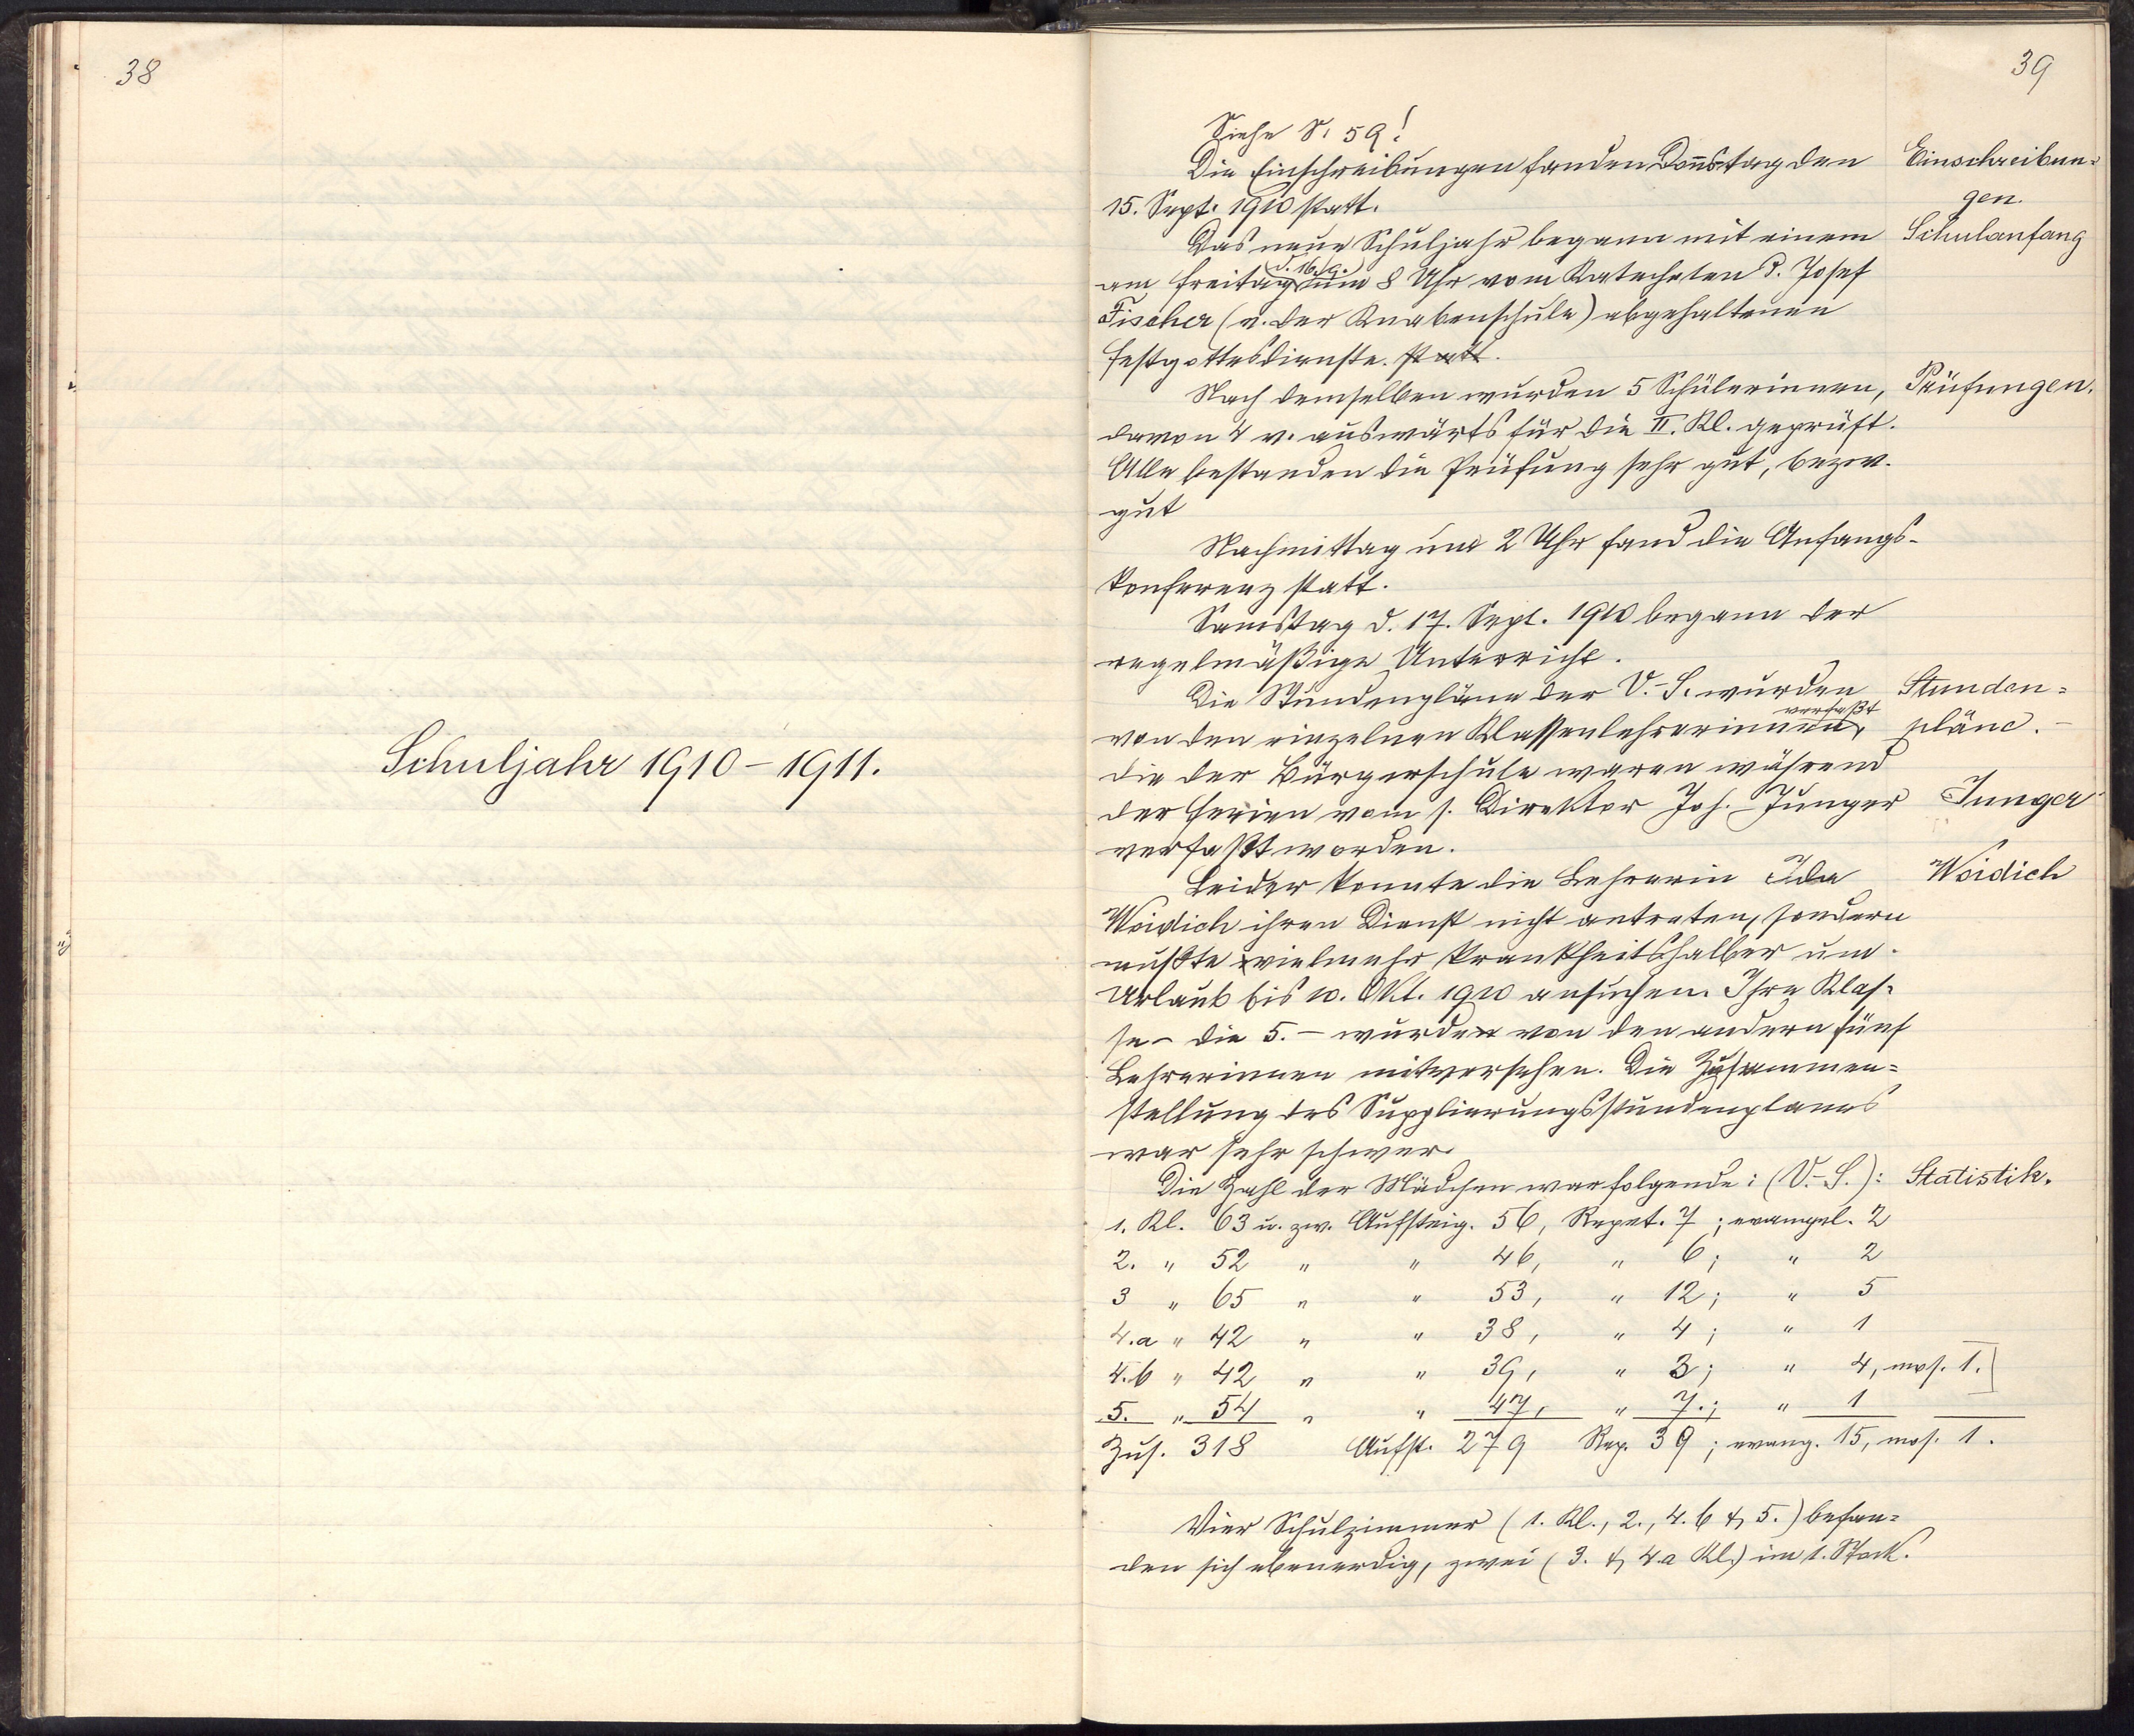 38
Schuljahr 1910–1911.
39
Siehe S. 59!
Die Einschreibungen fanden Don̄stag den
Einschreibun=
15. Sept. 1910 statt.
gen.
Das neue Schuljahr begann mit einem
Schulanfang
d. 16./9.
am Freitag um 8 Uhr vom Katecheten P. Josef
Fischer (v. der Knabenschule) abgehaltenen
Festgottesdienste. statt.
Nach demselben wurden 5 Schülerinnen,
Prüfungen.
davon 4 v. auswärts für die II. Kl. geprüft.
Alle bestanden die Prüfung sehr gut, bezw.
gut
Nachmittag um 2 Uhr fand die Anfangs-
konferenz statt.
Samstag d. 17. Sept. 1910 begann der
regelmäßige Unterricht.
Die Stundenpläne der V.-S. wurden
Stunden=
verfaßt
von den einzelnen Klassenlehrerinnen,
pläne.–
die der Bürgerschule waren während
der Ferien vom s. Direktor Joh. Junger
Junger
verfaßt worden.
Leider konnte die Lehrerin Ida
Woidich
Woidich ihren Dienst nicht antreten, sondern
mußte vielmehr krankheitshalber um
Urlaub bis 10. Okt. 1910 ansuchen. Ihre Klas=
se – die 5. – wurden von den andern fünf
Lehrerinnen mitversehen. Die Zusammen=
stellung des Supplierungsstundenplanes
war sehr schwer.
Die Zahl der Mädchen war folgende: (V.-S.):
Statistik.
1. Kl. 63 u. zw. Aufsteig. 56, Repet. 7; evangel. 2
2. " 52 " " 46, " 6; " 2
3 " 65 " " 53, " 12; " 5
4.a " 42 " " 38, " 4; " 1
4.b " 42 " " 39, " 3; " 4, mos. 1.
5. " 54 " " 47, " 7.; " 1
Zus. 318 Aufst. 279 Rep. 39; evang. 15, mos. 1.
Vier Schulzimmer (1. Kl., 2., 4. b & 5.) befan=
den sich ebenerdig, zwei (3. & 4.a Kl.) im 1. Stock.